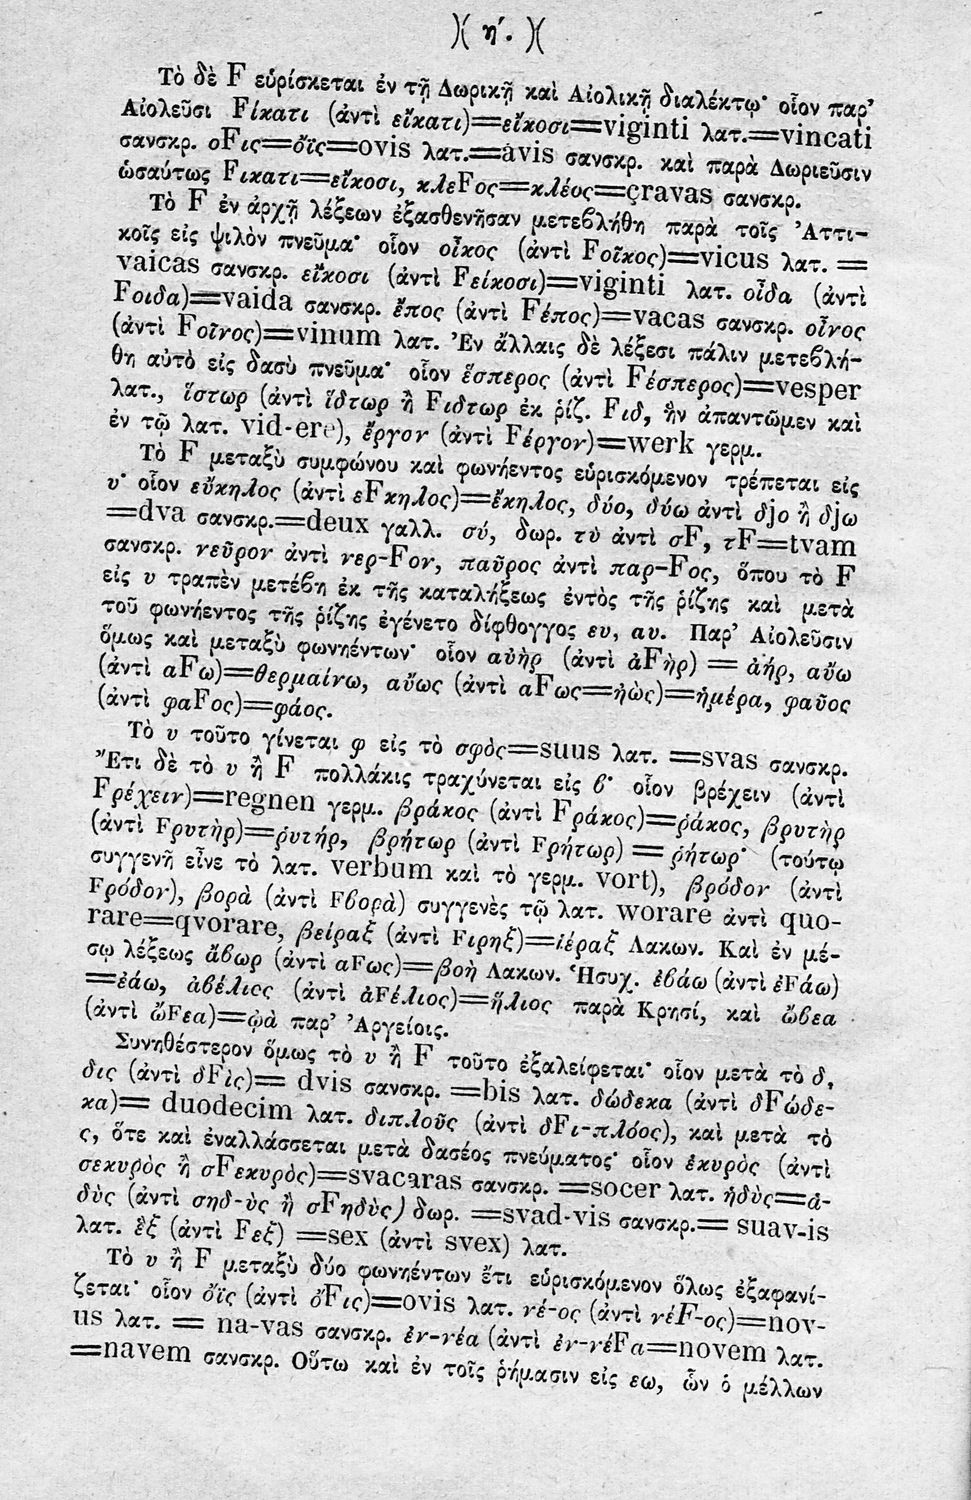 )( ηʹ. )(
Τὸ δὲ F εὑρίσκεται ἐν τῇ Δωρικῇ καὶ Αἰολικῇ διαλέκτῳ· οἷον παρ’
Αἰολεῦσι Fίκατι (ἀντὶ εἴκατι)=εἴκοσι=viginti λατ.=vincati
σανσκρ. οFις=ὄϊς=ovis λατ.=avis σανσκρ. καὶ παρὰ Δωριεῦσιν
ὡσαύτως Fικατι=εἴκοσι, κλεFος=κλέος=çravas σανσκρ.
Τὸ F ἐν ἀρχῇ λέξεων ἐξασθενῆσαν μετεβλήθη παρὰ τοῖς ’Αττι-
κοῖς εἰς ψιλὸν πνεῦμα· οἷον οἶκος (ἀντὶ Fοῖκος)=vicus λατ. =
vaicas σανσκρ. εἴκοσι (ἀντὶ Fείκοσι)=viginti λατ. οἶδα (ἀντὶ
Fοιδα)=vaida σανσκρ. ἔπος (ἀντὶ Fέπος)=vacas σανσκρ. οἶνος
(ἀντὶ Fοῖνος)=vinum λατ. ’Εν ἄλλαις δὲ λέξεσι πάλιν μετεβλή-
θη αὐτὸ εἰς δασὺ πνεῦμα· οἷον ἕσπερος (ἀντὶ Fέσπερος)=vesper
λατ., ἵστωρ (ἀντὶ ἵδτωρ ἢ Fιδτωρ ἐκ ῥίζ. Fιδ, ἣν ἀπαντῶμεν καὶ
ἐν τῷ λατ. vid-ere), ἔργον (ἀντὶ Fέργον)=werk γερμ.
Τὸ F μεταξὺ συμφώνου καὶ φωνήεντος εὑρισκόμενον τρέπεται εἰς
υ· οἷον εὔκηλος (ἀντὶ εFκηλος)=ἔκηλος, δύο, δύω ἀντὶ djo ἢ djω
=dva σανσκρ.=deux γαλλ. σύ, δωρ. τὺ ἀντὶ σF, τF=tvam
σανσκρ. νεῦρον ἀντὶ νερ-Fον, παῦρος ἀντὶ παρ-Fος, ὅπου τὸ F
εἰς υ τραπὲν μετέβη ἐκ τῆς καταλήξεως ἐντὸς τῆς ῥίζης καὶ μετὰ
τοῦ φωνήεντος τῆς ῥίζης ἐγένετο δίφθογγος ευ, αυ. Παρ’ Αἰολεῦσιν
ὅμως καὶ μεταξὺ φωνηέντων· οἷον αὐὴρ (ἀντὶ ἀFὴρ) = ἀήρ, αὔω
(ἀντὶ αFω)=θερμαίνω, αὔως (ἀντὶ αFως=ἠὼς)=ἡμέρα, φαῦος
(ἀντὶ φαFος)=φάος.
Τὸ υ τοῦτο γίνεται φ εἰς τὸ σφὸς=suus λατ. =svas σανσκρ.
Ἔτι δὲ τὸ υ ἢ F πολλάκις τραχύνεται εἰς β· οἷον βρέχειν (ἀντὶ
Fρέχειν)=regnen γερμ. βράκος (ἀντὶ Fράκος)=ῥάκος, βρυτὴρ
(ἀντὶ Fρυτὴρ)=ῥυτήρ, βρήτωρ (ἀντὶ Fρήτωρ) = ῥήτωρ· (τούτῳ
συγγενῆ εἶνε τὸ λατ. verbum καὶ τὸ γερμ. vort), βρόδον (ἀντὶ
Fρόδον), βορὰ (ἀντὶ Fβορὰ) συγγενὲς τῷ λατ. worare ἀντὶ quo-
rare=qvorare, βείραξ (ἀντὶ Fιρηξ)=ἱέραξ Λακων. Καὶ ἐν μέ-
σῳ λέξεως ἄβωρ (ἀντὶ αFως)=βοὴ Λακων. Ἡσυχ. ἐβάω (ἀντὶ ἐFάω)
=ἐάω, ἀβέλιος (ἀντὶ ἀFέλιος)=ἥλιος παρὰ Κρησί, καὶ ὤβεα
(ἀντὶ ὤFεα)=ᾠὰ παρ’ ’Αργείοις.
Συνηθέστερον ὅμως τὸ υ ἢ F τοῦτο ἐξαλείφεται· οἷον μετὰ τὸ δ,
δις (ἀντὶ δFὶς)= dvis σανσκρ. =bis λατ. δώδεκα (ἀντὶ δFώδε-
κα)= duodecim λατ. διπλοῦς (ἀντὶ δFι-πλόος), καὶ μετὰ τὸ
ς, ὅτε καὶ ἐναλλάσσεται μετὰ δασέος πνεύματος· οἷον ἑκυρὸς (ἀντὶ
σεκυρὸς ἢ σFεκυρὸς)=svacaras σανσκρ. =socer λατ. ἡδὺς=ἁ-
δὺς (ἀντὶ σηδ-ὺς ἢ σFηδὺς) δωρ. =svad-vis σανσκρ.= suav-is
λατ. ἓξ (ἀντὶ Fεξ) =sex (ἀντὶ svex) λατ.
Τὸ υ ἢ F μεταξὺ δύο φωνηέντων ἔτι εὑρισκόμενον ὅλως ἐξαφανί-
ζεται· οἷον ὄϊς (ἀντὶ ὄFις)=ovis λατ. νέ-ος (ἀντὶ νέF-ος)=nov-
us λατ. = na-vas σανσκρ. ἐν-νέα (ἀντὶ ἐν-νέFα=novem λατ.
=navem σανσκρ. Οὕτω καὶ ἐν τοῖς ῥήμασιν εἰς εω, ὧν ὁ μέλλων